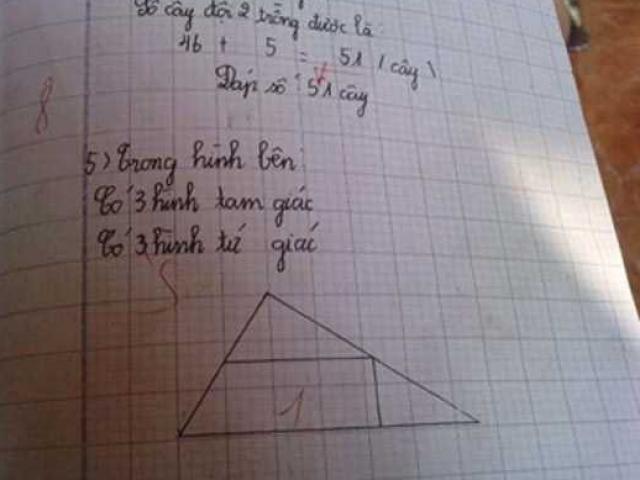 Số cây đội 2 trồng được là:
46 + 5 = 51 (cây)
Đáp số 51 cây
8
5) Trong hình bên:
Có 3 hình tam giác
Có 3 hình tứ giác
1